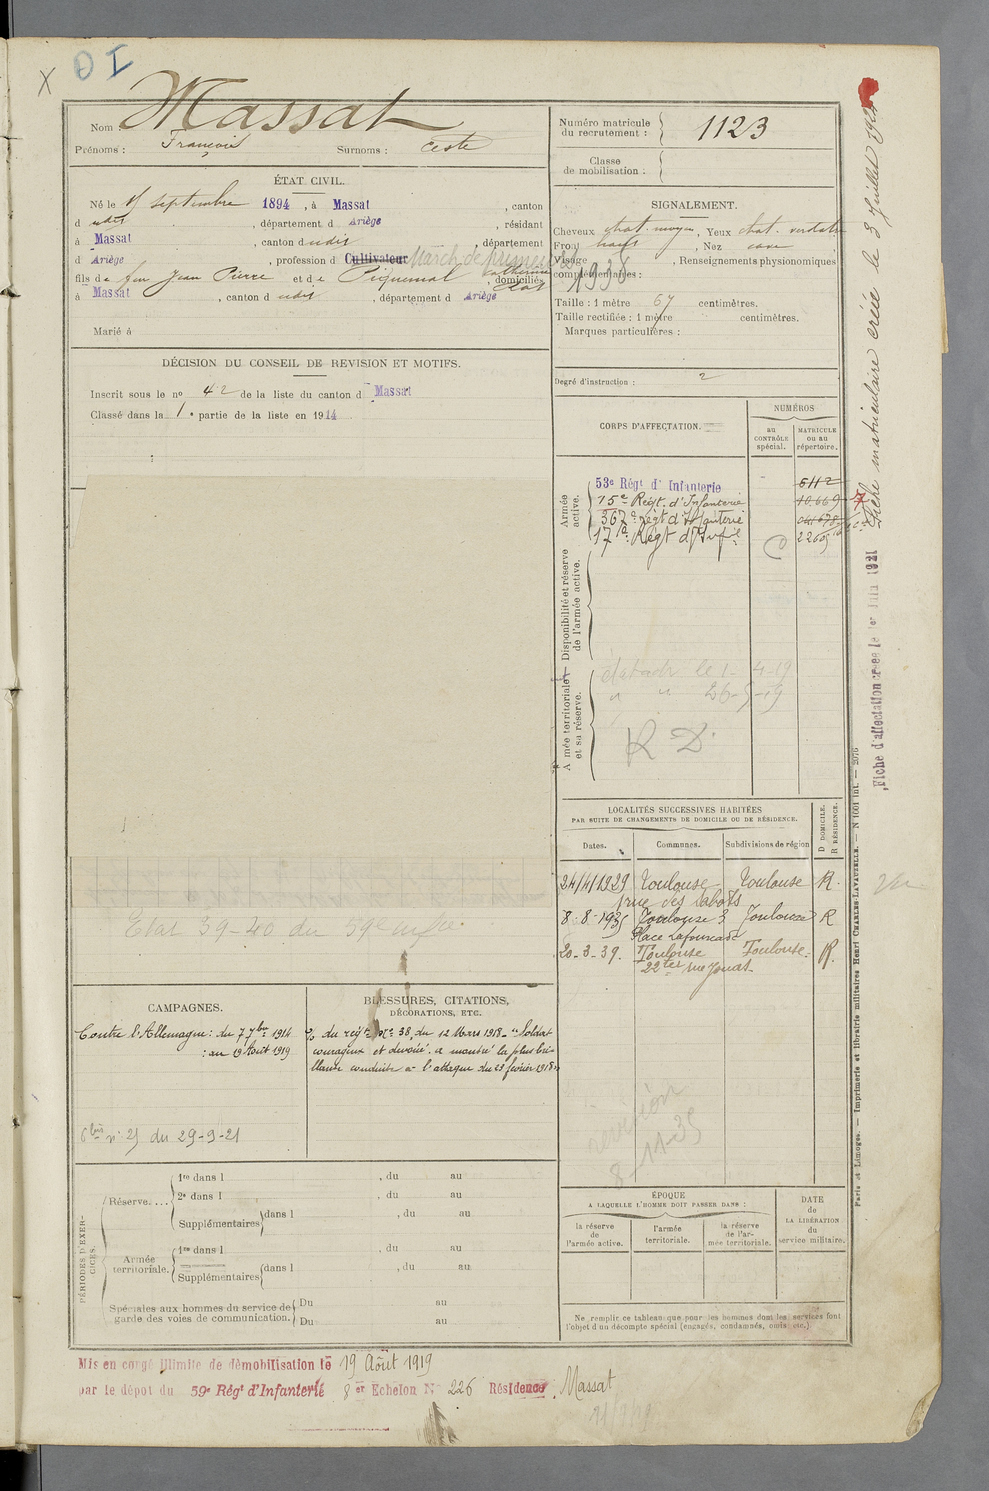 X
O I
Nom : Massat
Prénoms : François Surnoms : Ceste
Numéro matricule du recrutement : 1123
Classe de mobilisation :
ÉTAT CIVIL.
Né le septembre 1894, à Massat, canton
d udit, département d Ariège, résidant
à Massat, canton d udit, département
d Ariège, profession d Cultivateur March. de
fils de feu Jean Pierre et de Piquemal Catherine, domiciliés
à Massat, canton d udit, département d Ariège
Marié à
SIGNALEMENT.
Cheveux chat. moyen, Yeux chat. verdatre
Front haut, Nez cave
Visage, Renseignements physionomiques
complémentaires : 1936
Taille : 1 mètre 67 centimètres.
Taille rectifiée : 1 mètre centimètres.
Marques particulières :
Degré d'instruction : 2
DÉCISION DU CONSEIL DE REVISION ET MOTIFS.
Inscrit sous le nº 42 de la liste du canton d Massat
Classé dans la 1e partie de la liste en 1914
CORPS D'AFFECTATION.
NUMÉROS
au CONTRÔLE spécial.
MATRICULE ou au répertoire.
Armée active.
53e Régt d'Infanterie 6112
15e Régt. d'Infanterie 10.669
367e Régt d'Infanterie
17e Régt d'Inf
Disponibilité et réserve de l'armée active.
Armée territoriale et sa réserve.
le 1-4-19
" " 26-5-19
R D.
LOCALITÉS SUCCESSIVES HABITÉES
PAR SUITE DE CHANGEMENTS DE DOMICILE OU DE RÉSIDENCE.
Dates. Communes. Subdivisions de région
D DOMICILE.
R RÉSIDENCE.
24/4/1929 Toulouse Toulouse R.
rue des Sabots
8-8-1935 Toulouse 3 Toulouse R
Place Lafourcade
20-3-39. Toulouse Toulouse. R.
22ter rue
Etat 39-40 du 59e
CAMPAGNES.
Contre l'Allemagne : du 7 7bre 1914
: au 19 Août 1919
6 bis nº 25 du 29-9-21
BLESSURES, CITATIONS, DÉCORATIONS, ETC.
du régt Nº 38, du 12 Mars 1918 - "Soldat
courageux et dévoué, a montré la plus bril-
lante conduite à l'attaque du 23 février 1918"
révision
8-11-35
PÉRIODES D'EXERCICES.
Réserve....
1re dans l , du au
2e dans l , du au
Supplémentaires dans l , du au
Armée territoriale.
1re dans l , du au
Supplémentaires dans l , du au
Spéciales aux hommes du service de garde des voies de communication.
Du au
Du au
ÉPOQUE
A LAQUELLE L'HOMME DOIT PASSER DANS :
la réserve de l'armée active.
l'armée territoriale.
la réserve de l'armée territoriale.
DATE de LA LIBÉRATION du service militaire.
Ne remplir ce tableau que pour les hommes dont les services font
l'objet d'un décompte spécial (engagés, condamnés, omis etc.).
Mis en congé illimité de démobilisation le 19 Août 1919
par le dépôt du 59e Régt d'Infanterie 8er Echelon Nº 226 Résidence Massat
Fiche matriculaire créée le 3 Juillet 1924
Fiche d'affectation créée le 1er Juin 1921
Paris et Limoges. — Imprimerie et librairie militaires Henri CHARLES-LAVAUZELLE. — N 1001 int. — 2076